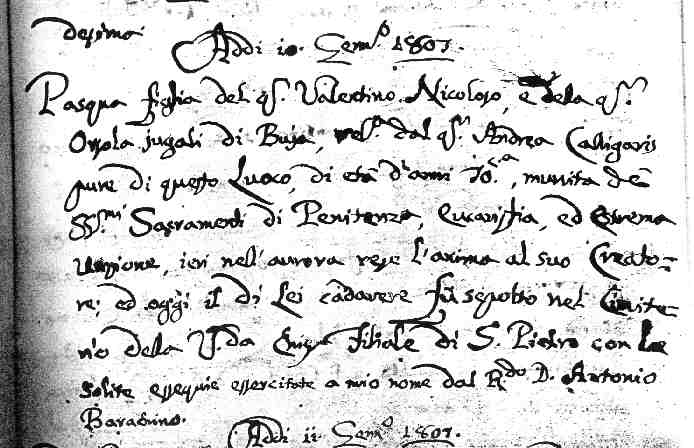 Addi 10. Genn.º 1807.
Pasqua figlia del qᵐ. Valentino Nicoloso, e della qᵐ.
Orsola jugali di Buja, rel.ª dal qᵐ. Andrea Calligaris
pure di questo Luoco, di età d'anni 70.ᶜᵃ, munita de
SS.ᵐⁱ Sacramenti di Penitenza, Eucaristia, ed Estrema
unzione, ieri nell'aurora rese l'anima al suo Creato=
re; ed oggi il di Lei cadavere fù sepolto nel Cimite=
rio della V.da Chiesa filiale di S. Pietro con le
solite essequie essercitate a mio nome dal R.do D. Antonio
Barachino.
Addi 11. Genn.º 1807.